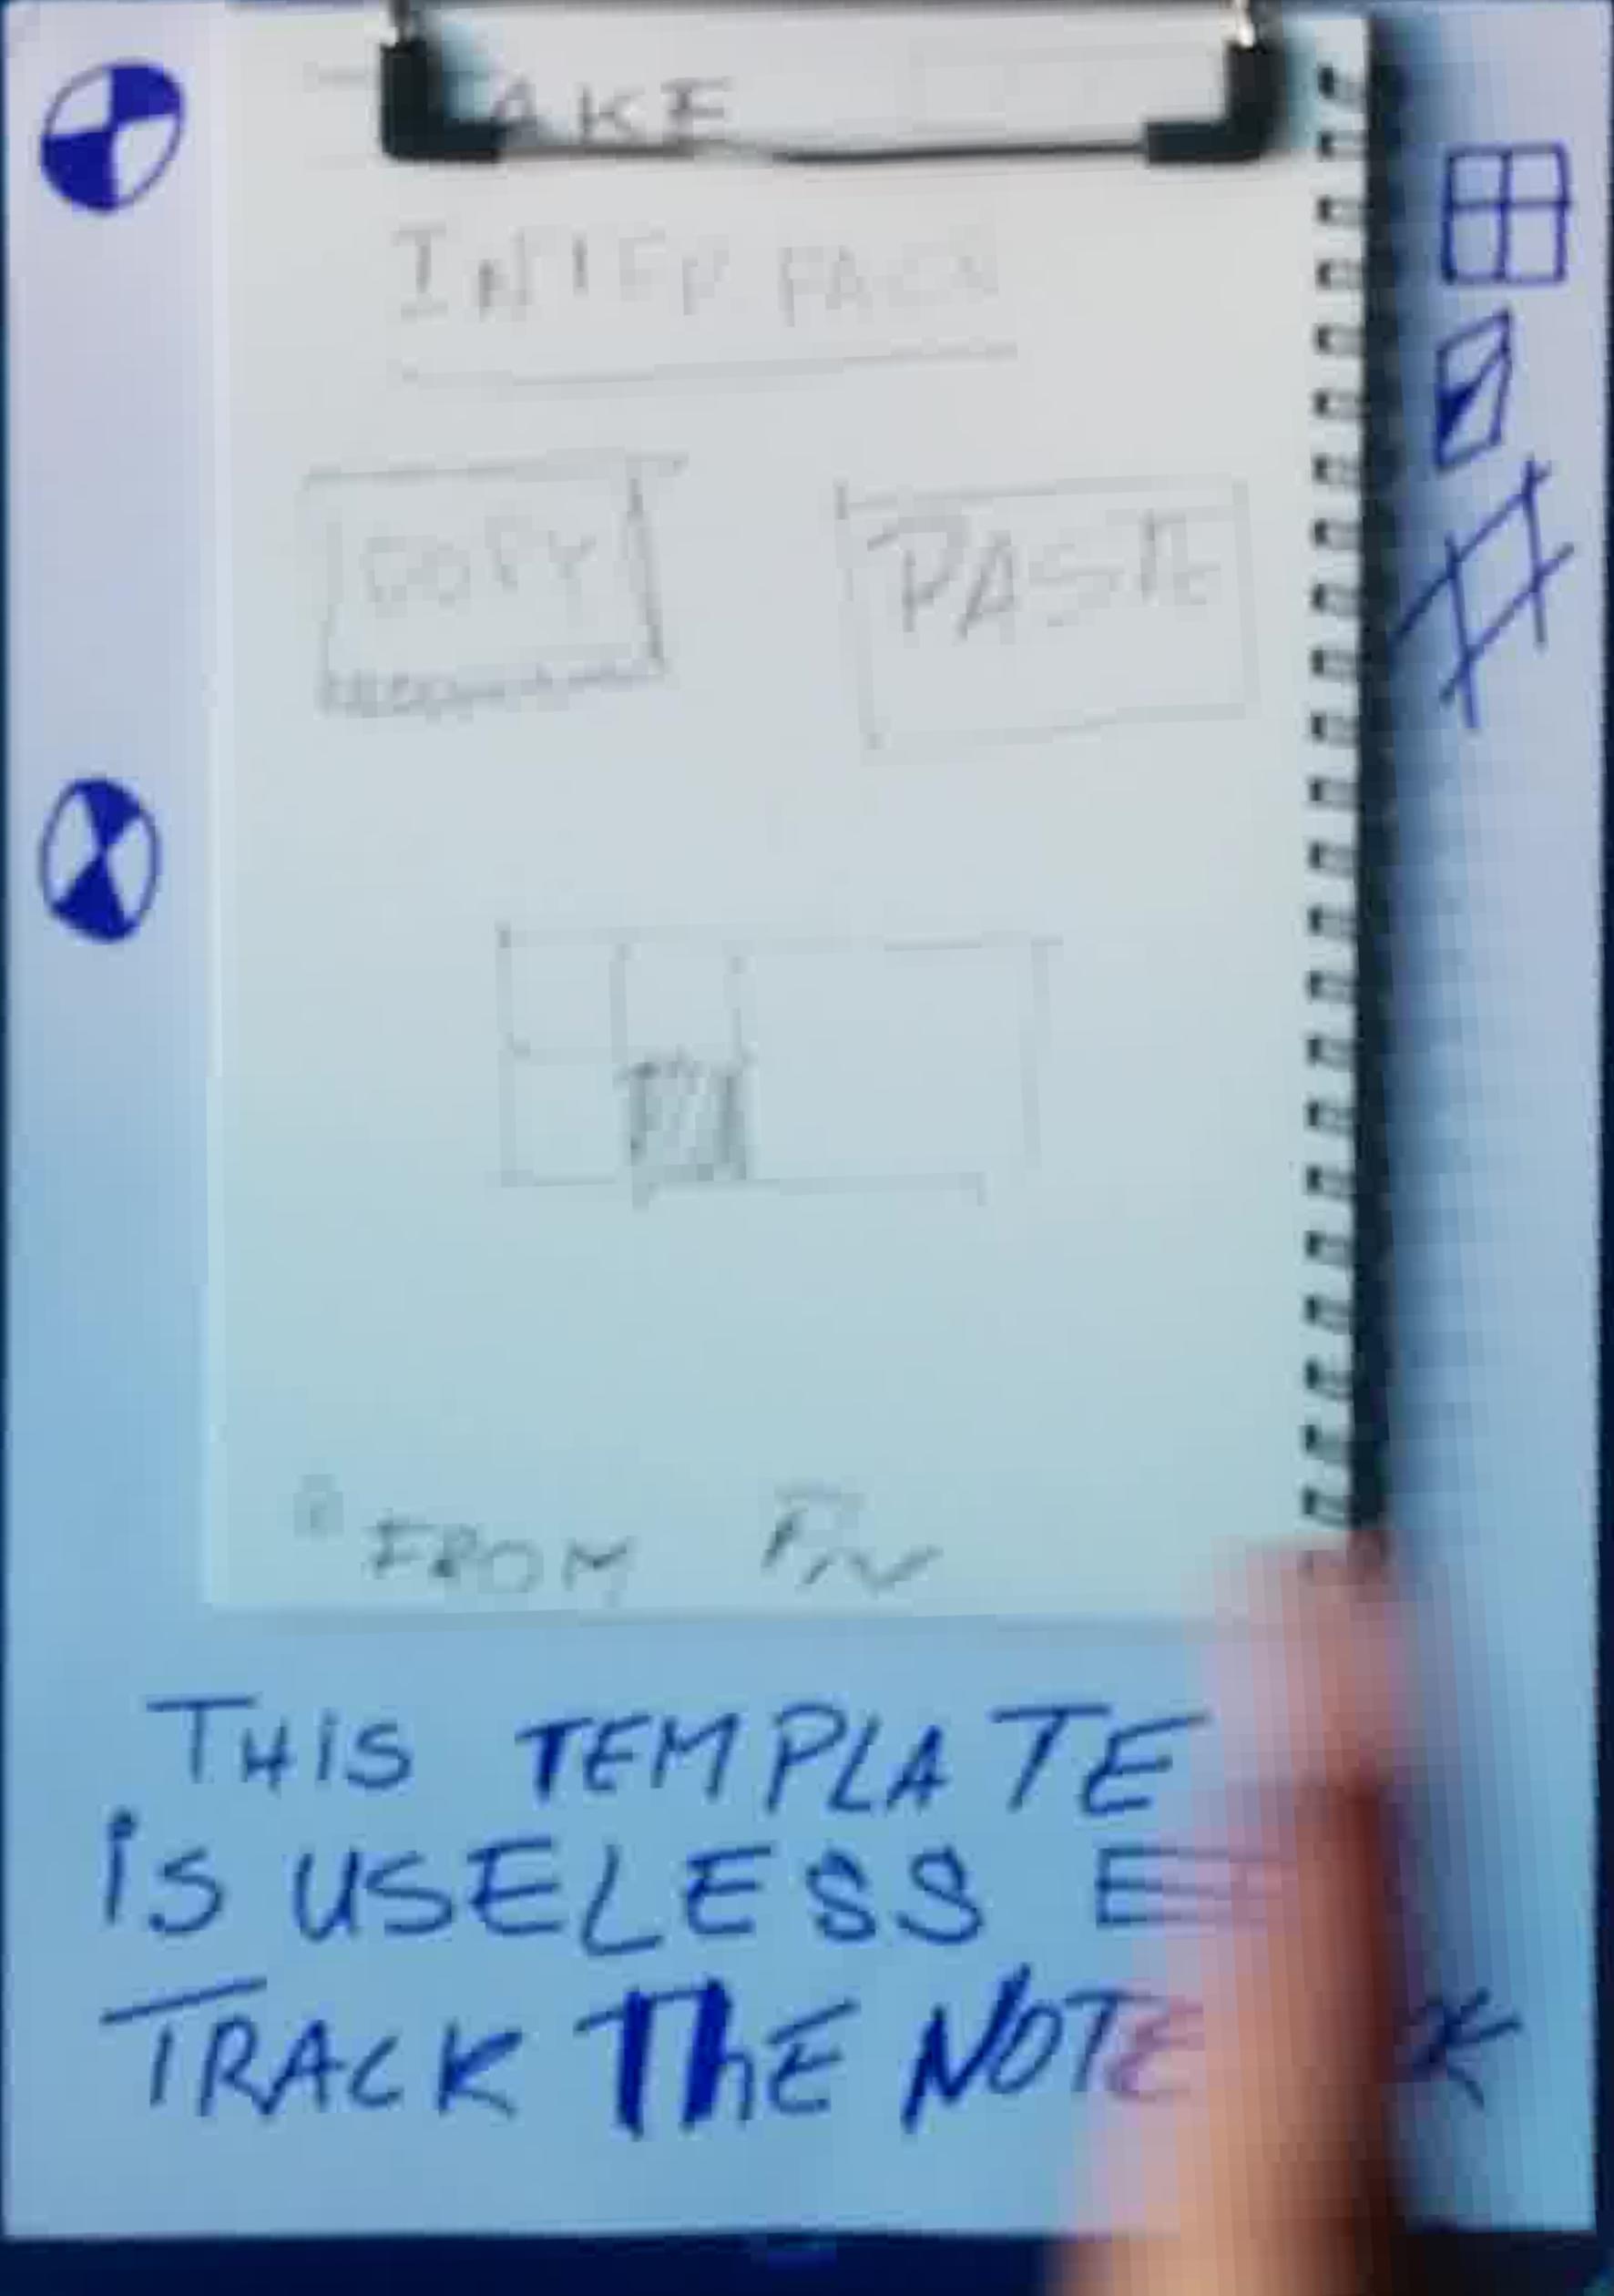 AKE
INTERFACE
COPY
PASTE
FROM
THIS TEMPLATE
iS USELESS
TRACK ThE NOTE